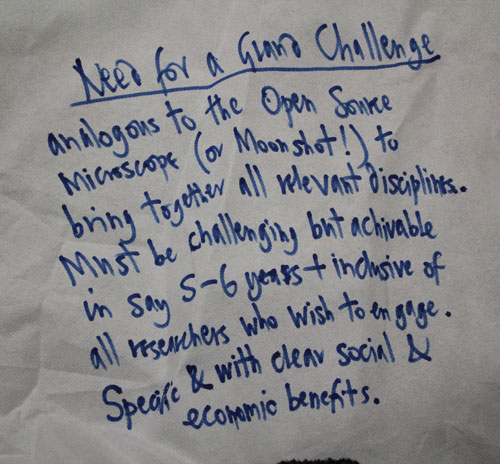 Need for a Grand Challenge
analogous to the Open Source
Microscope (or Moonshot!) to
bring together all relevant disciplines.
Must be challenging but achivable
in say 5-6 years + inclusive of
all researchers who wish to engage.
Specific & with clear social &
economic benefits.